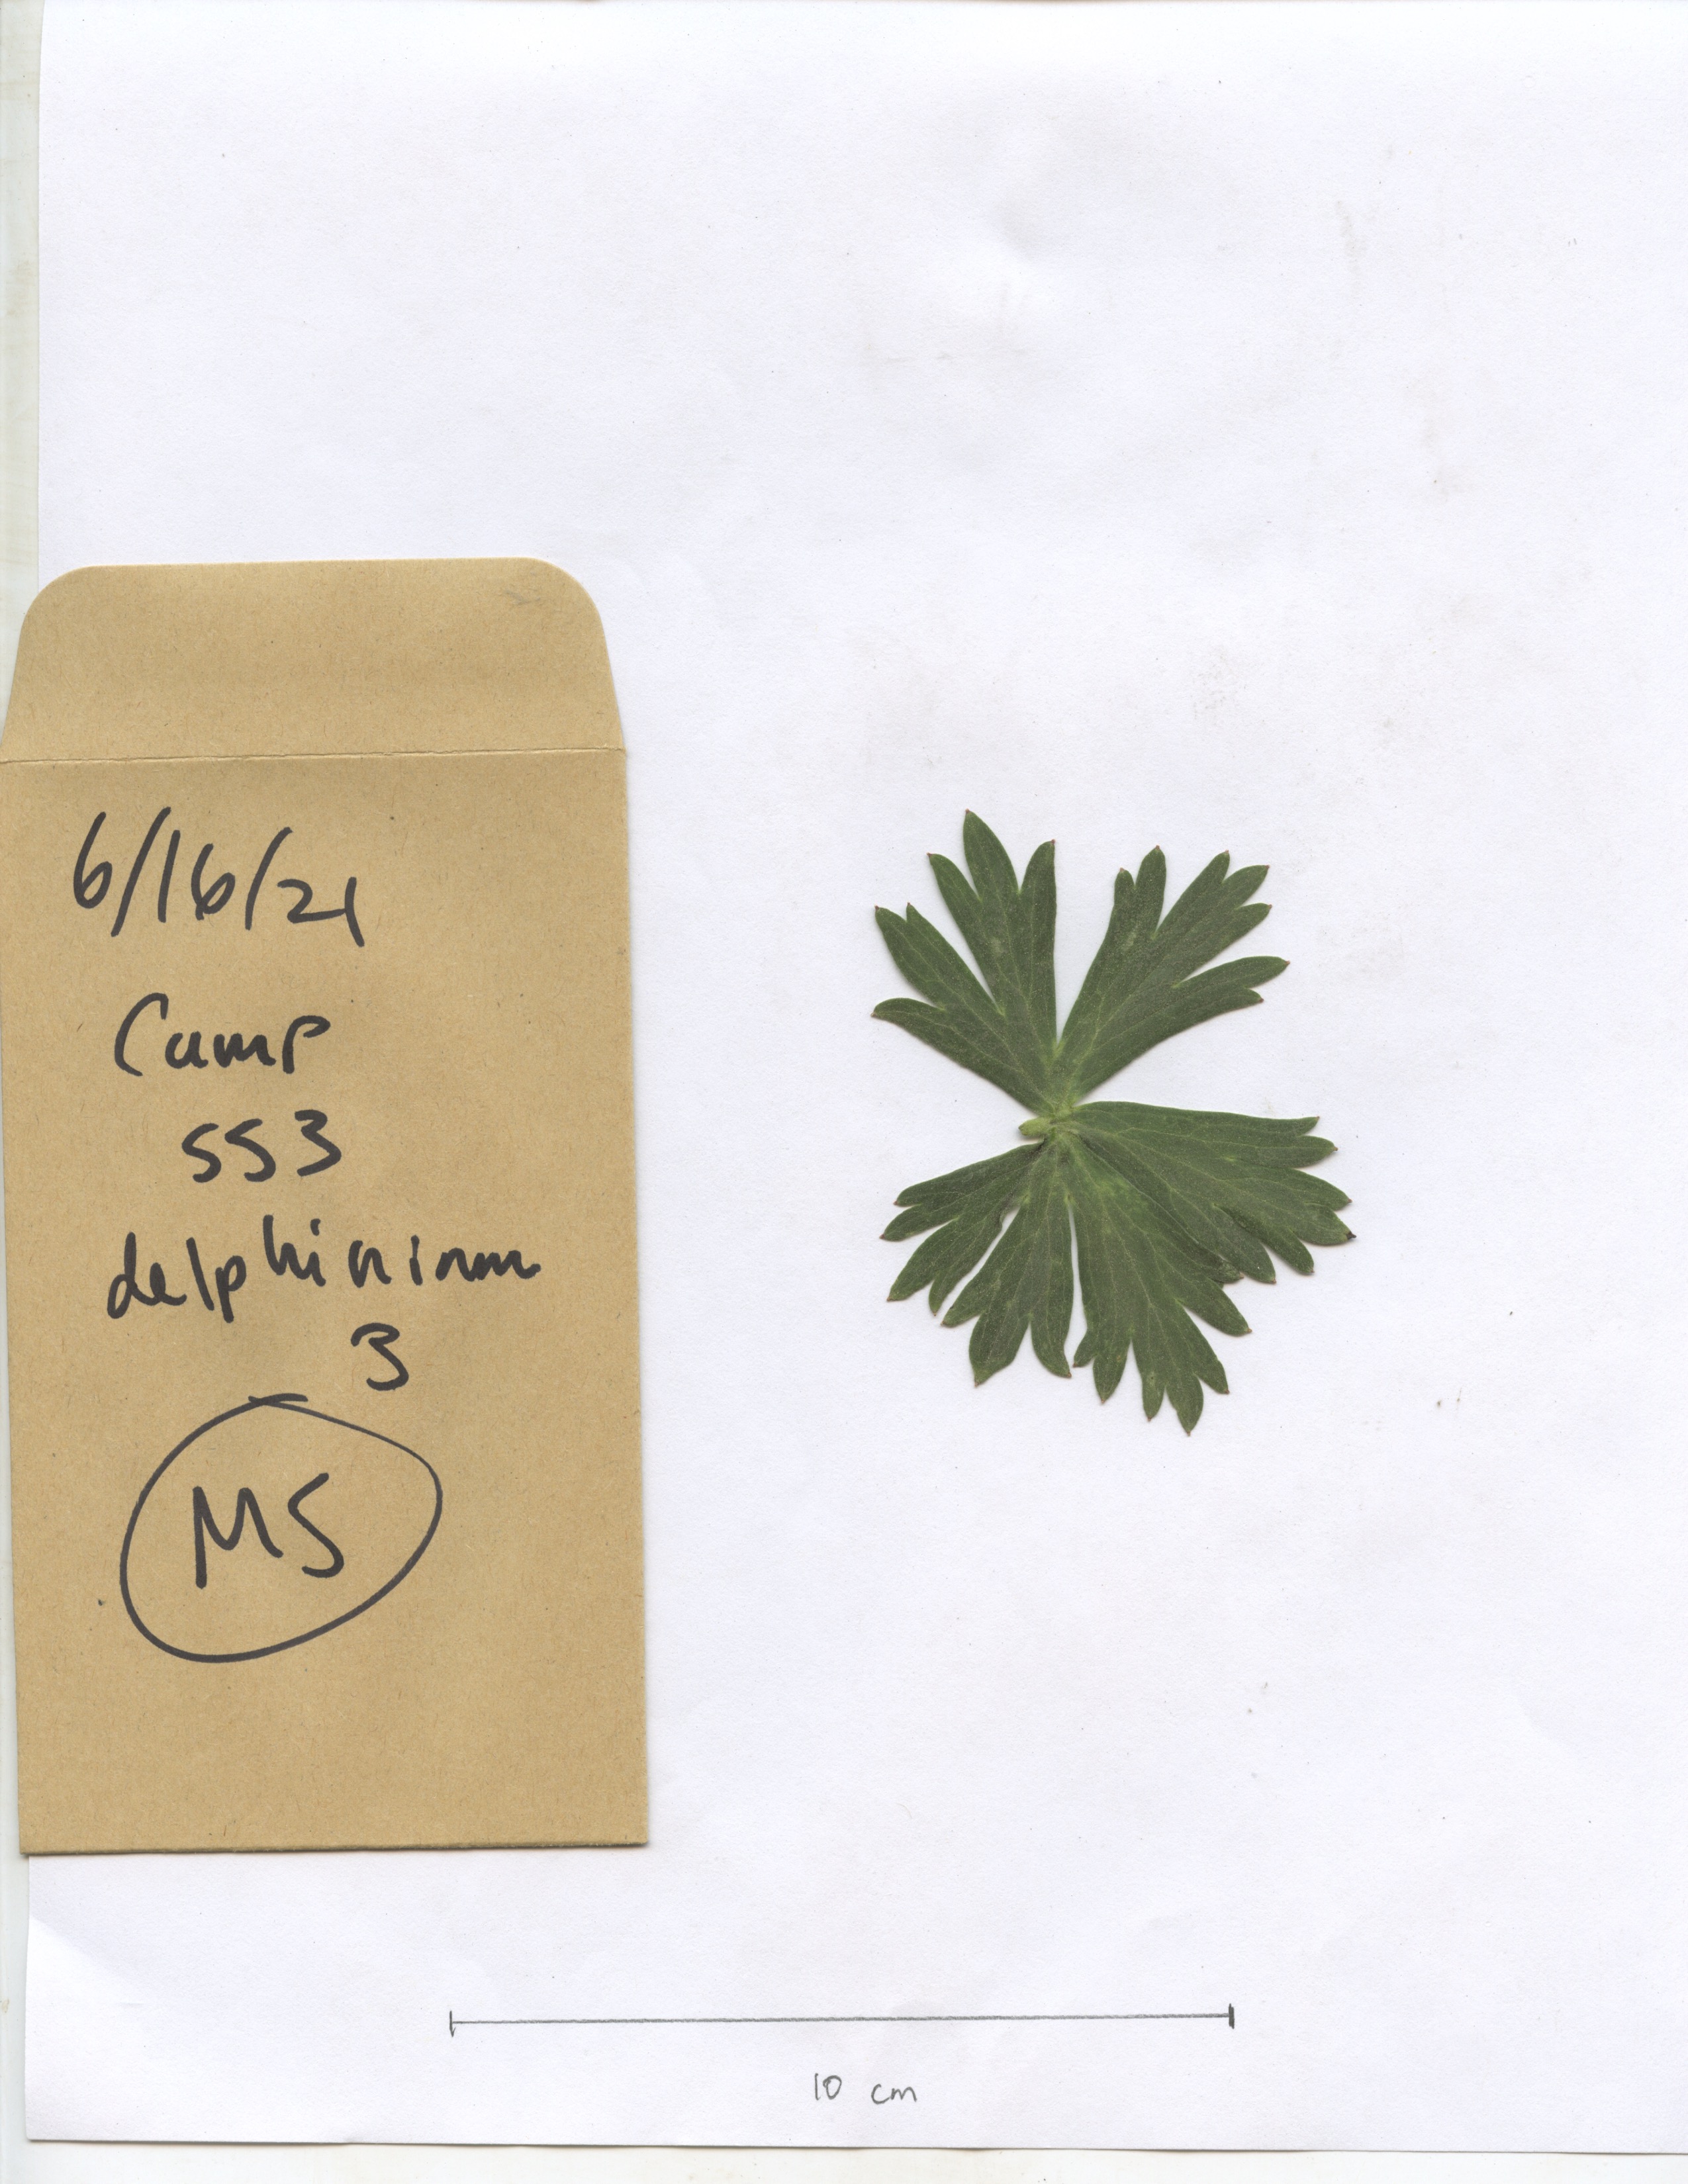 6/16/21
Camp
SS3
delphinium
3
MS
10 cm